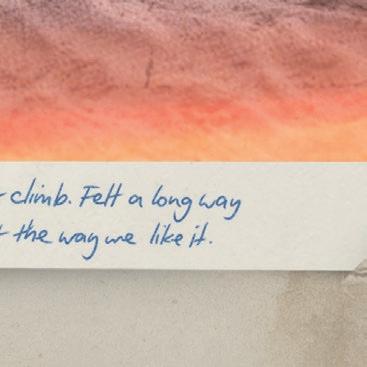 climb. Felt a long way
the way we like it.